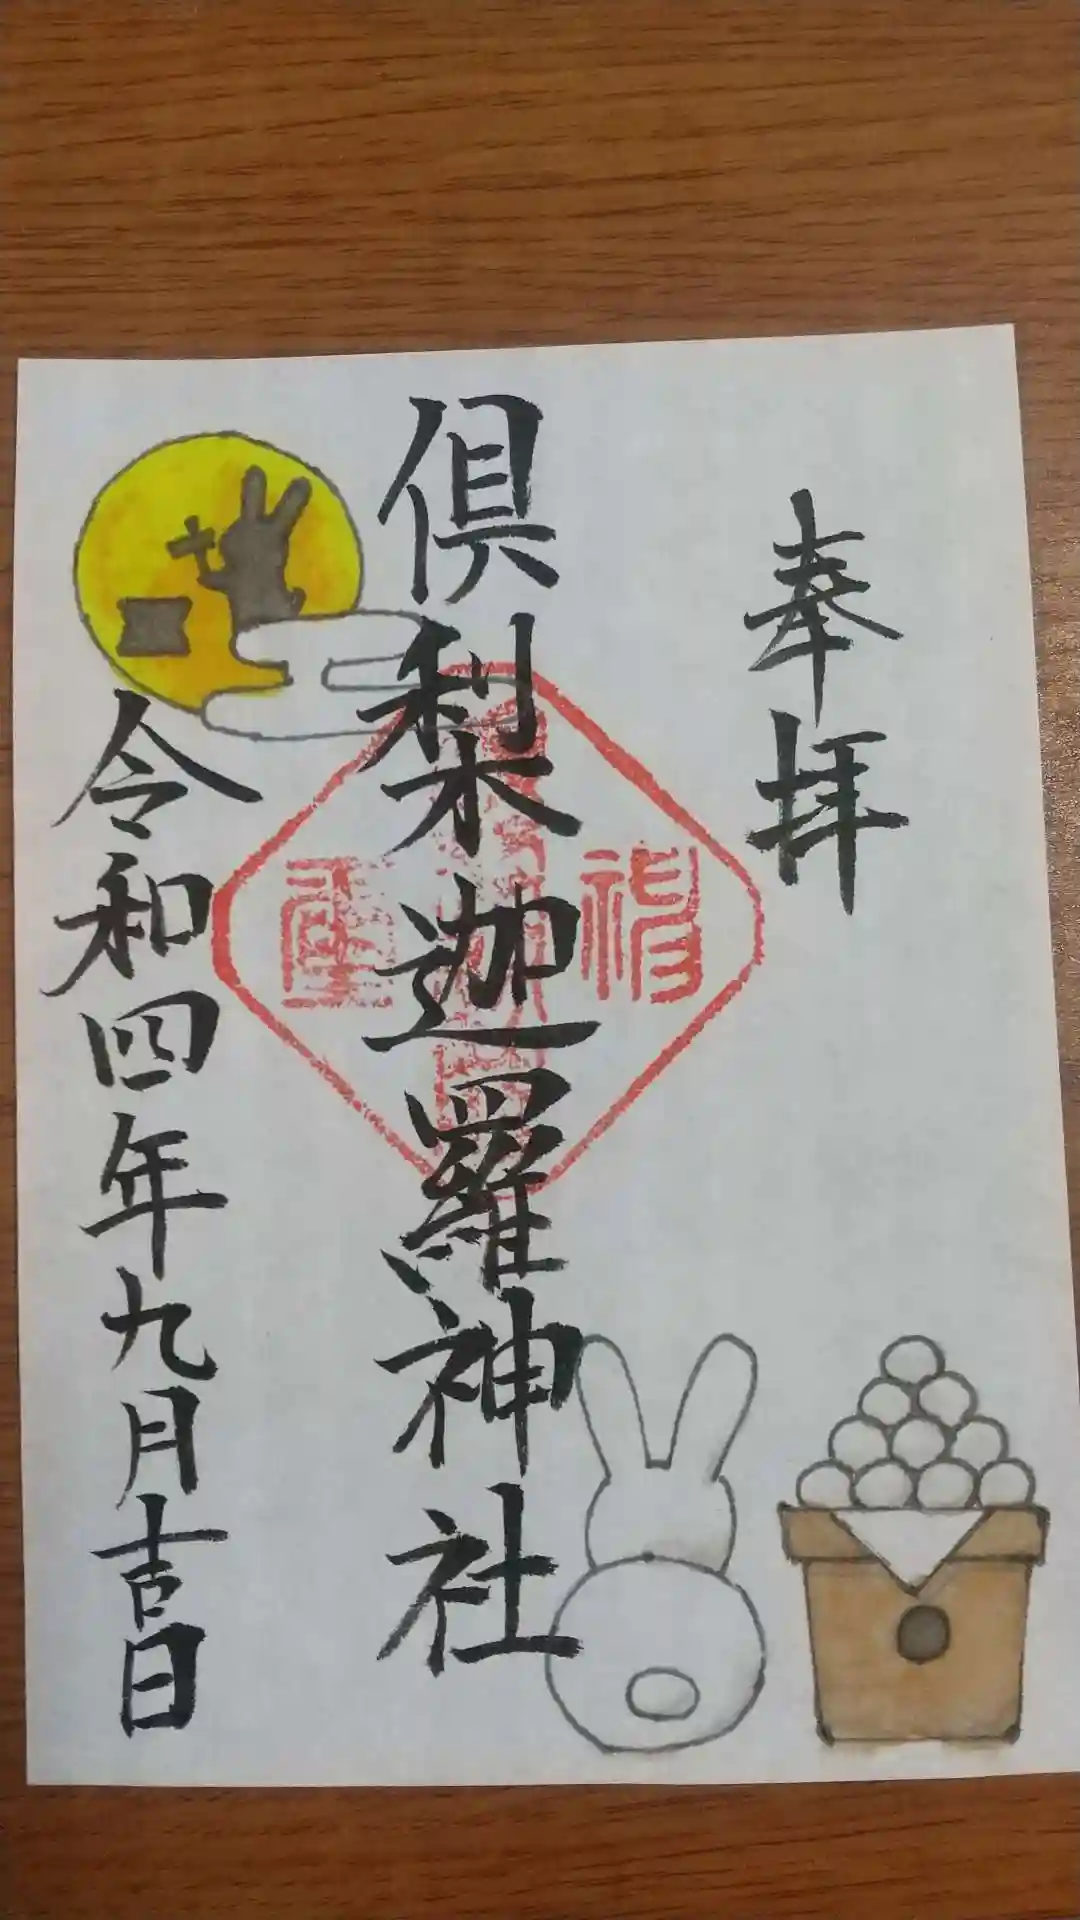 奉拝
倶梨迦羅神社
令和四年九月吉日